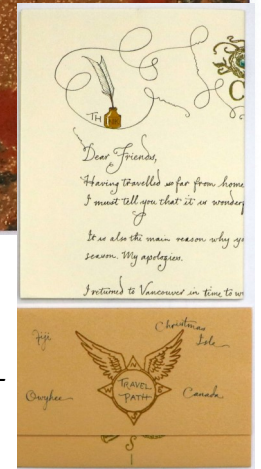 TH
C
Dear Friends,
Having travelled so far from home
I must tell you that it is wonder
It is also the main reason why yo
season. My apologies.
I returned to Vancouver in time to w
Fiji
Christmas
Isle
TRAVEL
PATH
Owyhee
Canada
S